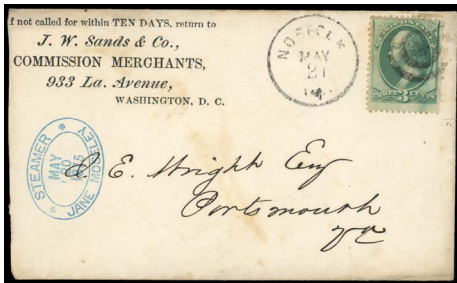 If not called for within TEN DAYS, return to
J. W. Sands & Co.,
COMMISSION MERCHANTS,
933 La. Avenue,
WASHINGTON, D. C.
NORFOLK
MAY
21
STEAMER
MAY
20
JANE MOSELEY
E. Wright Esq
Portsmouth
Va